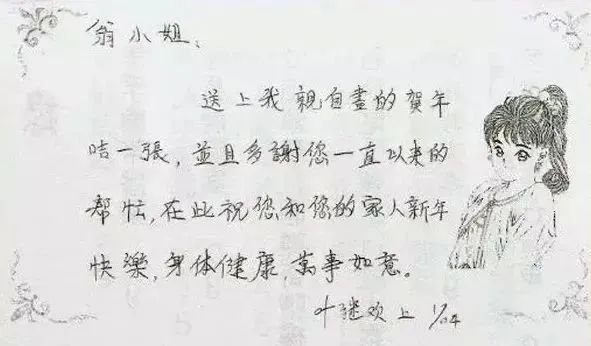 翁小姐:
送上我親自畫的賀年
咭一張, 並且多謝您一直以来的
帮忙, 在此祝您和您的家人新年
快樂, 身体健康, 萬事如意。
叶继欢上 1/04